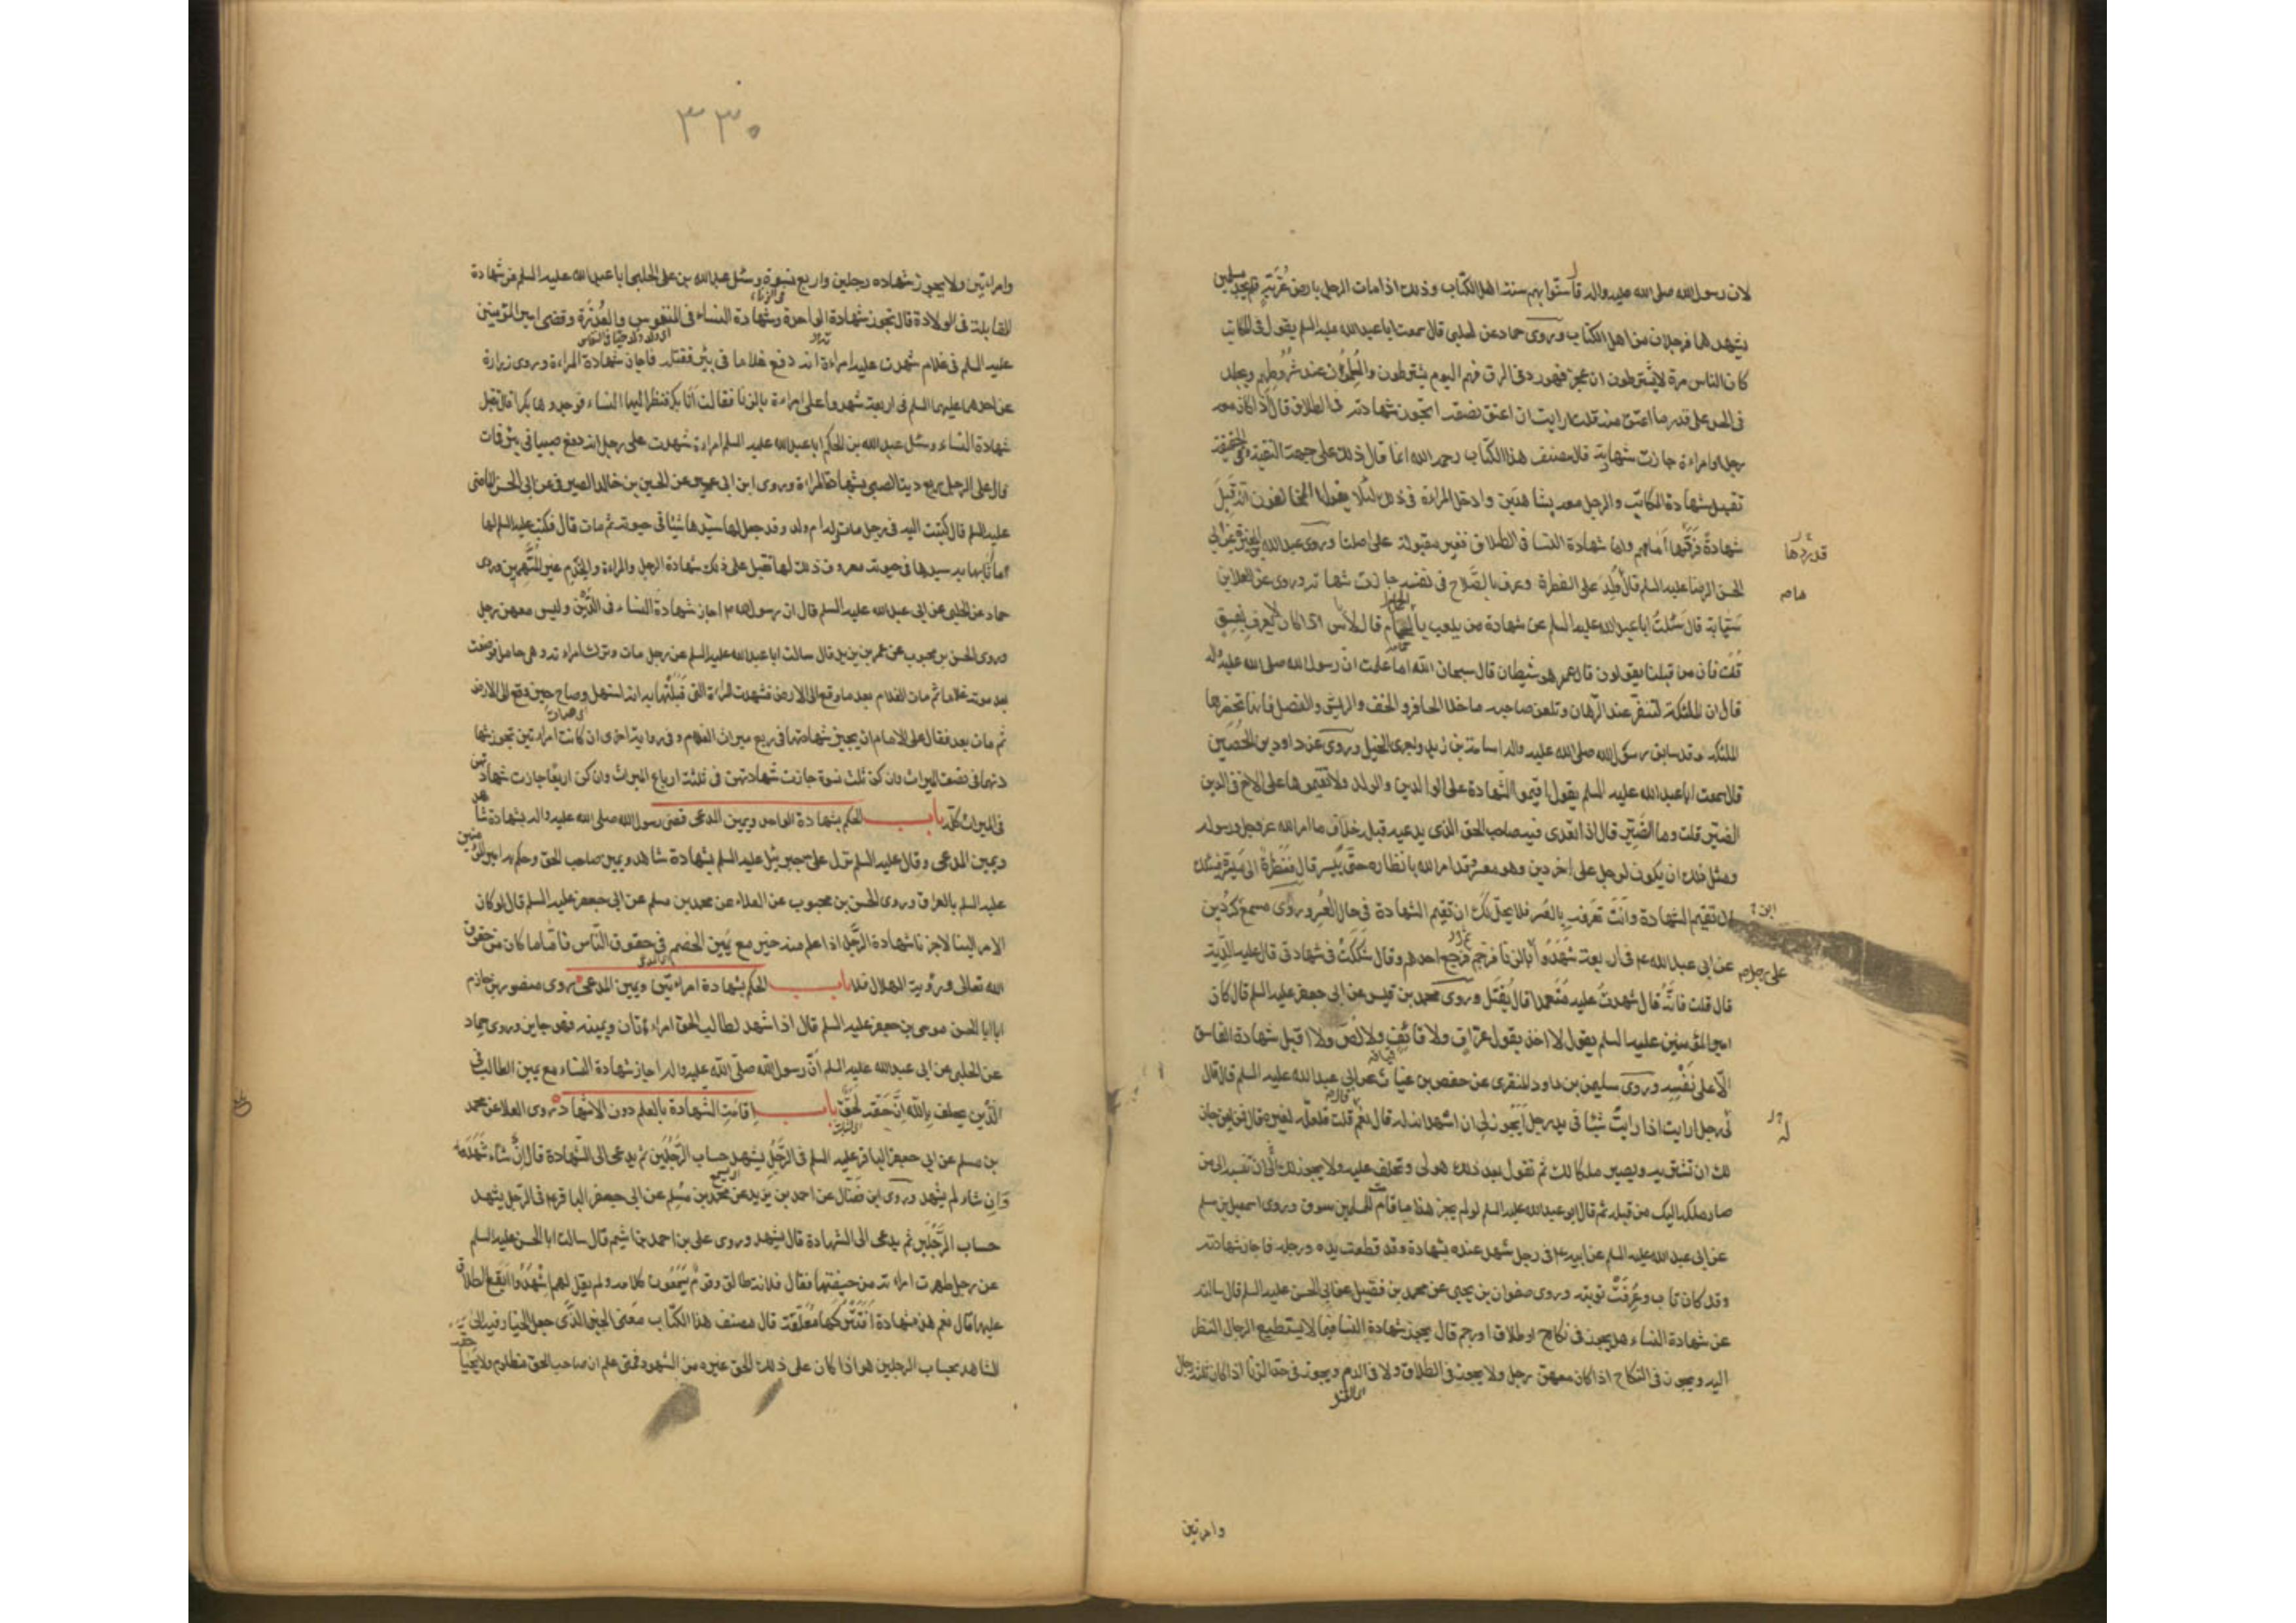 لان رسول الله صلى الله عليه واله قال سنوا بهم سنة اهل الكتاب وذلك اذا مات الرجل بارض غربة فلم يجد مسلمين
يشهدهما فرجلان من اهل الكتاب وروى حماد عن الحلبى قال سمعت ابا عبد الله عليه السلم يقول فى المكاتب
كان الناس مرة لا يشترطون ان عجز فهو رد فى الرق فهم اليوم يشترطون والمسلمون عند شروطهم ويجلد
فى الحد على قدر ما اعتق منه قلت ارايت ان اعتق نصفه اتجوز شهادته فى الطلاق قال اذا كان معه
رجل وامراءة جازت شهادته قال مصنف هذا الكتاب رحمه الله انما قال ذلك على جهة التقية وفى الحقيقة
تقبل شهادة المكاتب والرجل معه بشاهدين وادخل المراءة فى ذلك لئلا يقول المخالفون انه قبل
شهادة فرقها امامهم واما شهادة النسا فى الطلاق فغير مقبولة على اصلنا وروى عبد الله بن المغيرة عن ابى
قد ردها
الحسن الرضا عليه السلم قال من ولد على الفطرة وعرف بالصلاح فى نفسه جازت شهادته وروى عن العلا بن
سيابة قال سئلت ابا عبد الله عليه السلم عن شهادة من يلعب بالحمام قال لا باس اذا كان لا يعرف بفسق
قلت فان من قبلنا يقولون قال عمر هو شيطان قال سبحان الله اما علمت ان رسول الله صلى الله عليه واله
قال ان الملئكة لتنفر عند الرهان وتلعن صاحبه ما خلا الحافر والخف والريش والنصل فانها تحضرها
الملئكة وقد سابق رسول الله صلى الله عليه واله اسامة بن زيد واجرى الخيل وروى عن داود بن الحصين
قال سمعت ابا عبد الله عليه السلم يقول اقيموا الشهادة على الوالدين والولد ولا تقيموها على الاخ فى الدين
الضير قلت وما الضير قال اذا تعدى فيه صاحب الحق الذى يدعيه قبله خلاف ما امر الله عز وجل ورسوله
ومثل ذلك ان يكون لرجل على اخر دين وهو معسر وقد امر الله بانظاره حتى ييسر قال فنظرة الى ميسرة فيسئلك
ان تقيم الشهادة وانت تعرفه بالعسر فلا يحل لك ان تقيم الشهادة فى حال العسر وروى مسمع كردين
ابن
عن ابى عبد الله ع فى اربعة شهدوا بالزنا فرجم فرجع احدهم وقال شككت فى شهادتى قال عليه الدية
على رجل
قال قلت فانه قال شهدت عليه متعمدا قال يقتل وروى محمد بن قيس عن ابى جعفر عليه السلم قال كان
امير المؤمنين عليه السلم يقول لا اخذ بقول عراف ولا قائف ولا لص ولا اقبل شهادة الفاسق
الا على نفسه وروى سليمن بن داود المنقرى عن حفص بن غياث عن ابى عبد الله عليه السلم قال قال
له رجل ارايت اذا رايت شيئا فى يد رجل ايجوز لى ان اشهد انه له قال نعم قلت فلعله لغيره قال فمن اين جاز
له
لك ان تشتريه ويصير ملكا لك ثم تقول بعد ذلك هو لى وتحلف عليه ولا يجوز لك ان تنسبه الى من
صار ملكه اليك من قبله ثم قال ابو عبد الله عليه السلم لو لم يجز هذا ما قامت للمسلمين سوق وروى اسمعيل بن مسلم
عن ابى عبد الله عليه السلم عن ابيه ع فى رجل شهد عنده بشهادة وقد قطعت يده ورجله فاجاز شهادته
وقد كان تاب وعرفت توبته وروى صفوان بن يحيى عن محمد بن فضيل عن ابى الحسن عليه السلم قال سالته
عن شهادة النساء هل يجوز فى نكاح او طلاق او رجم قال يجوز شهادة النسا فيما لا يستطيع الرجال النظر
اليه ويجوز فى النكاح اذا كان معهن رجل ولا يجوز فى الطلاق ولا فى الدم ويجوز فى حد الزنا اذا كان ثلثة رجال
وامرتين
٣٣٠
وامراتين ولا يجوز شهادة رجلين واربع نسوة وسئل عبد الله بن على الحلبى ابا عبد الله عليه السلم عن شهادة
القابلة فى الولادة قال تجوز شهادة الواحدة وشهادة النساء فى المنفوس والعذرة وقضى امير المؤمنين
عليه السلم فى غلام شهدت عليه امراءة انه دفع غلاما فى بئر فقتله فاجاز شهادة المراءة وروى زرارة
عن احدهما عليهما السلم فى اربعة شهدوا على امراءة بالزنا فقالت انا بكر فنظر اليها النساء فوجدوها بكرا قال تقبل
شهادة النساء وسئل عبد الله بن الحكم ابا عبد الله عليه السلم امراءة شهدت على رجل انه دفع صبيا فى بئر فمات
قال على الرجل ربع دية الصبى بشهادة المراءة وروى ابن ابى عمير عن الحسين بن خالد الصيرفى عن ابى الحسن الماضى
عليه السلم قال كتبت اليه فى رجل مات وله ام ولد وقد جعل لها سيدها شيئا فى حيوته ثم مات قال فكتب عليه السلم لها
ما اثابها به سيدها فى حيوته معروف ذلك لها تقبل على ذلك شهادة الرجل والمراءة والخدم غير المتهمين وروى
حماد عن الحلبى عن ابى عبد الله عليه السلم قال ان رسول الله ص اجاز شهادة النساء فى الدين وليس معهن رجل
وروى الحسن بن محبوب عن عمر بن يزيد قال سالت ابا عبد الله عليه السلم عن رجل مات وترك امراءته وهى حامل فوضعت
بعد موته غلاما ثم مات الغلام بعد ما وقع الى الارض فشهدت المراءة التى قبلتها به انه استهل وصاح حين وقع الى الارض
ثم مات بعد فقال على الامام ان يجيز شهادتها فى ربع ميراث الغلام وفى رواية اخرى ان كانت امراءتين تجوز شها
دتهما فى نصف الميراث وان كن ثلث نسوة جازت شهادتهن فى ثلثة ارباع الميراث وان كن اربعا جازت شهادتهن
فى الميراث كله باب الحكم بشهادة الواحد ويمين المدعى قضى رسول الله صلى الله عليه واله بشهادة شاهد
ويمين المدعى وقال عليه السلم نزل على جبرئيل عليه السلم بشهادة شاهد ويمين صاحب الحق وحكم به امير المؤمنين
عليه السلم بالعراق وروى الحسن بن محبوب عن العلاء عن محمد بن مسلم عن ابى جعفر عليه السلم قال لو كان
الامر الينا لاجزنا شهادة الرجل اذا علم منه خير مع يمين الخصم فى حقوق الناس فاما ما كان من حقوق
الله تعالى ورؤية الهلال فلا باب الحكم بشهادة امراءتين ويمين المدعى روى منصور بن حازم
ان ابا الحسن موسى بن جعفر عليه السلم قال اذا شهد لطالب الحق امراءتان ويمينه فهو جايز وروى حماد
عن الحلبى عن ابى عبد الله عليه السلم ان رسول الله صلى الله عليه واله اجاز شهادة النساء مع يمين الطالب فى
الدين يحلف بالله ان حقه لحق باب اقامة الشهادة بالعلم دون الاشهاد روى العلا عن محمد
بن مسلم عن ابى جعفر الباقر عليه السلم فى الرجل يشهد حساب الرجلين ثم يدعى الى الشهادة قال ان شاء شهد
وان شاء لم يشهد وروى ابن فضال عن احمد بن يزيد عن محمد بن مسلم عن ابى جعفر الباقر ع فى الرجل يشهد
حساب الرجلين ثم يدعى الى الشهادة قال يشهد وروى على بن احمد بن اشيم قال سالت ابا الحسن عليه السلم
عن رجل طهرت امراءته من حيضها فقال فلانة طالق وقوم يسمعون كلامه ولم يقل لهم اشهدوا ايقع الطلاق
عليها قال نعم هذه شهادة افتتركها معلقة قال مصنف هذا الكتاب معنى الخبر الذى جعل الخيار فيه الى
الشاهد بحساب الرجلين هو اذا كان على ذلك الحق غيره من الشهود فمتى علم ان صاحب الحق مظلوم ولا يحيا